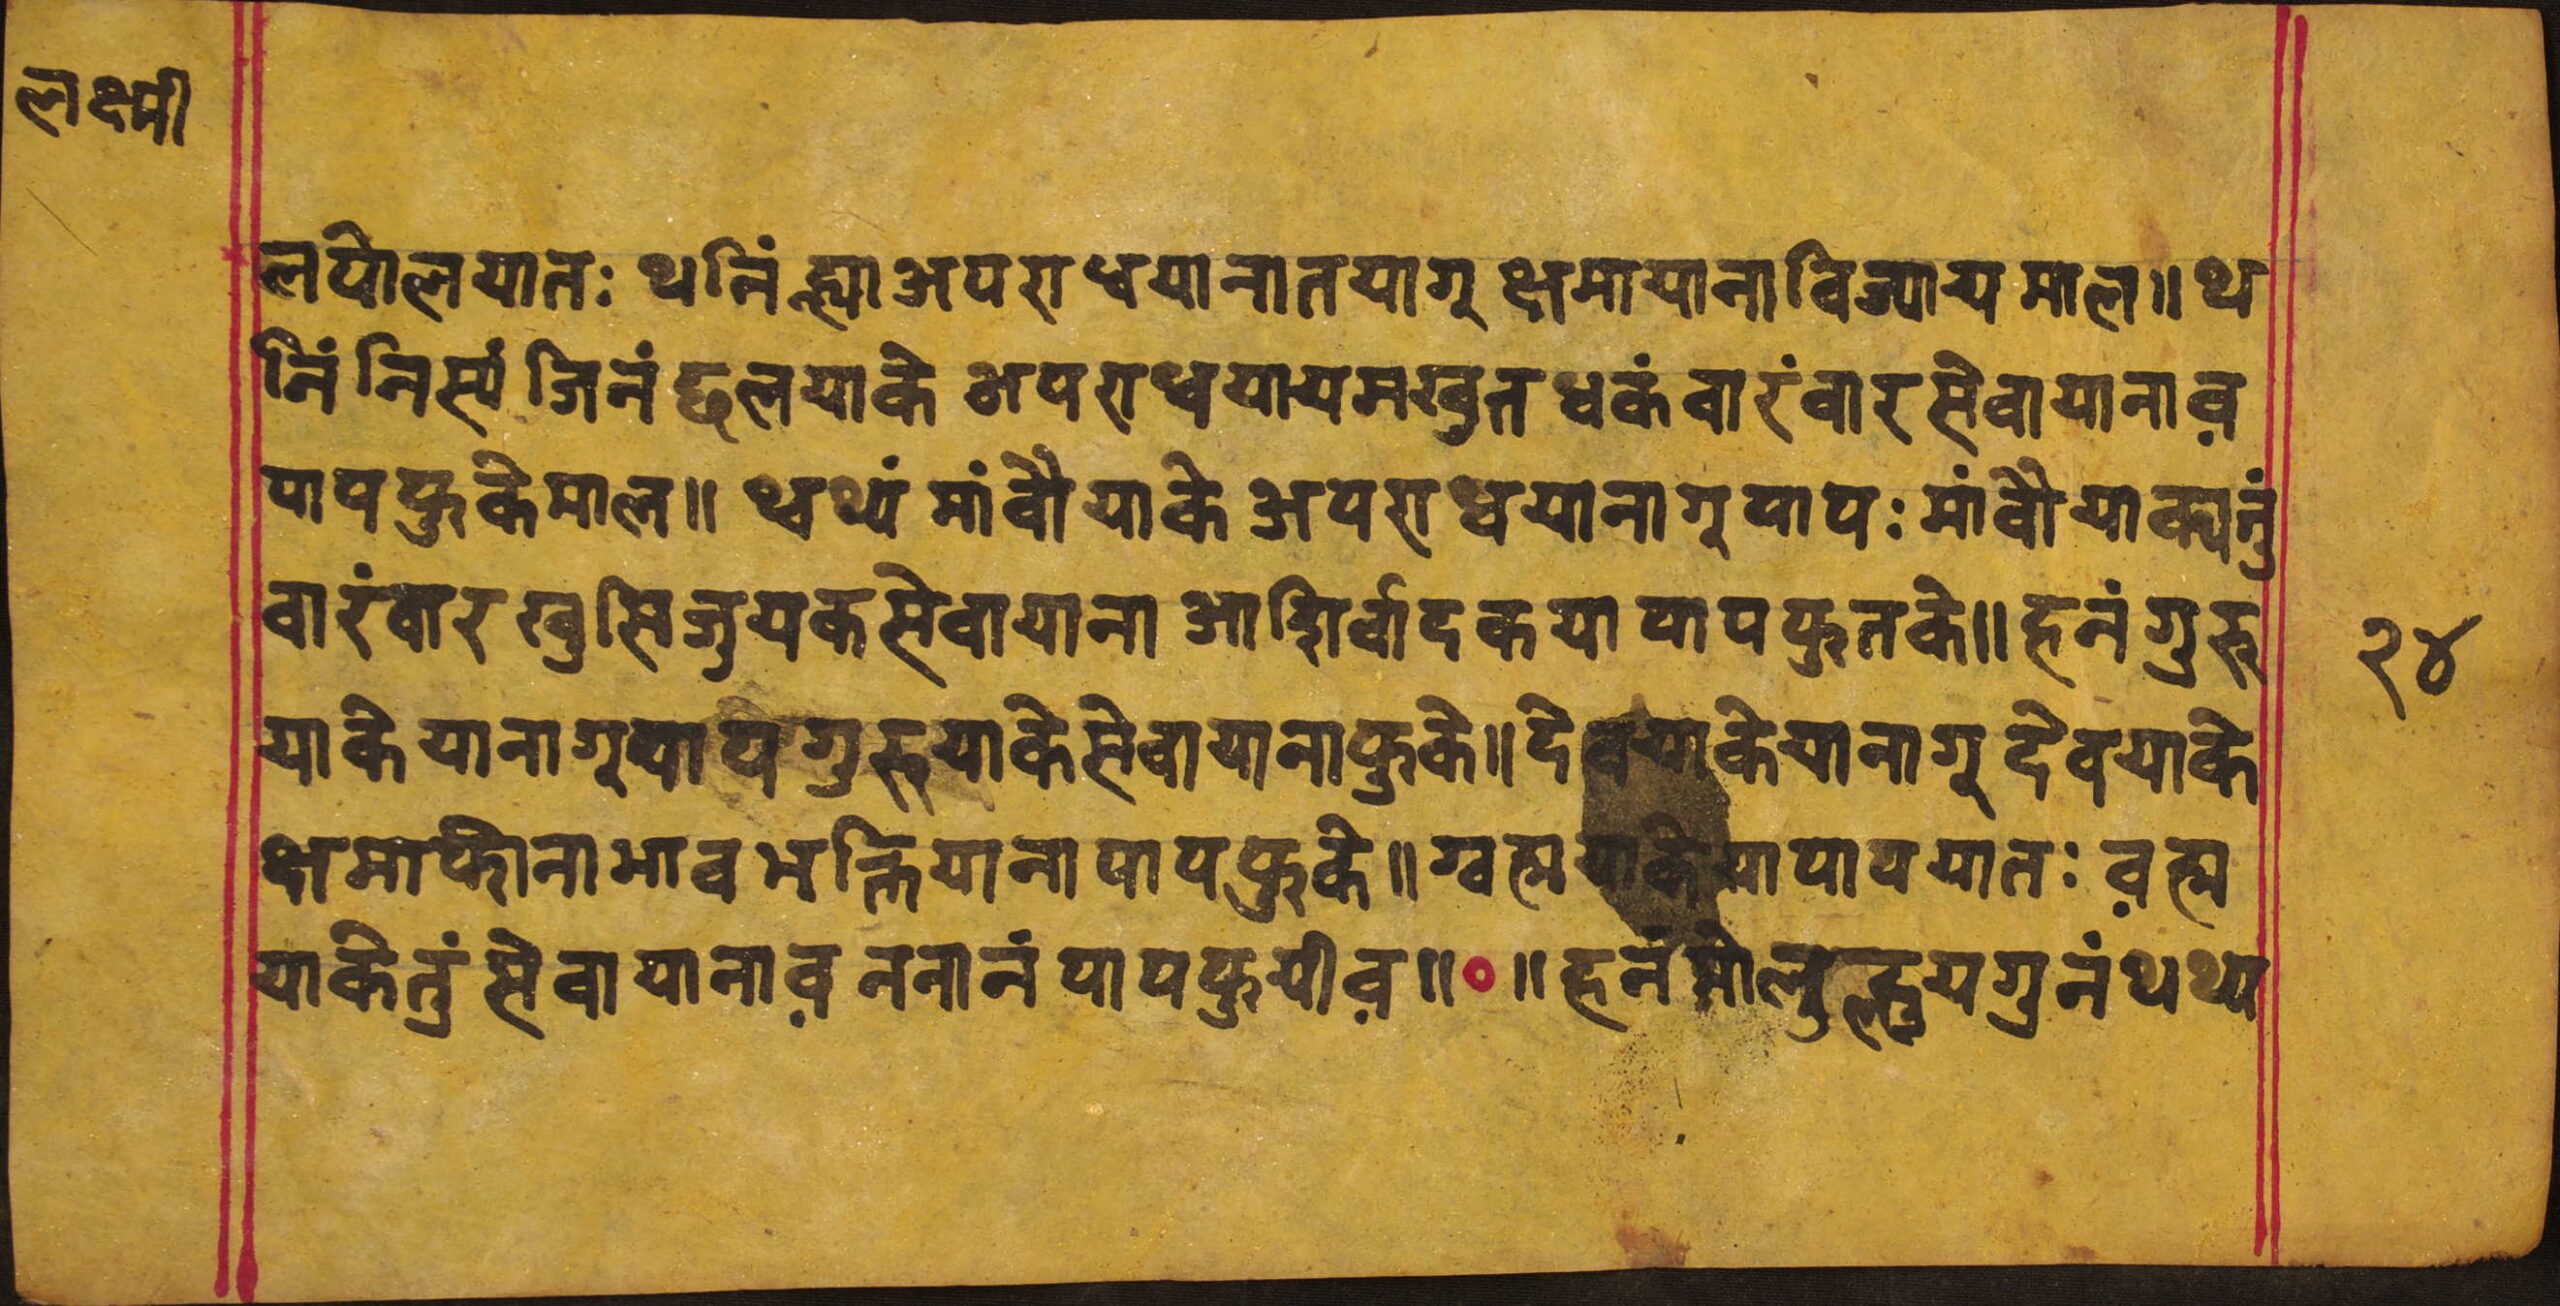 लक्ष्मी
लपोलयातः थनिं ह्ल्या अपराधयानातयागू क्षमायानाविज्यायमाल॥ थ
निं निस्यं जिनं छलयाके अपराधयायमखुत धकं वारंवारसेवायानाव़
पापफुकेमाल॥ थ्वथ्यं मांवौयाके अपराधयानागू पापः मांवौयाक्यतुं
वारंवार खुसिजुयकसेवायाना आशिर्वादकया पापफुतके॥ हनं गुरु
याके यानागू पाप गुरुयाके सेवायानाफुके॥ देवयाकेयानागू देवयाके
क्षमाफोना भावभक्तियाना पापफुके॥ ग्वह्मयाके या पापयातः व़ह्म
याकेतुं सेवायानाव़ ननानं पापफुयीव़॥०॥ हनं मोलुल्हुयगुनं थथ्य
२४